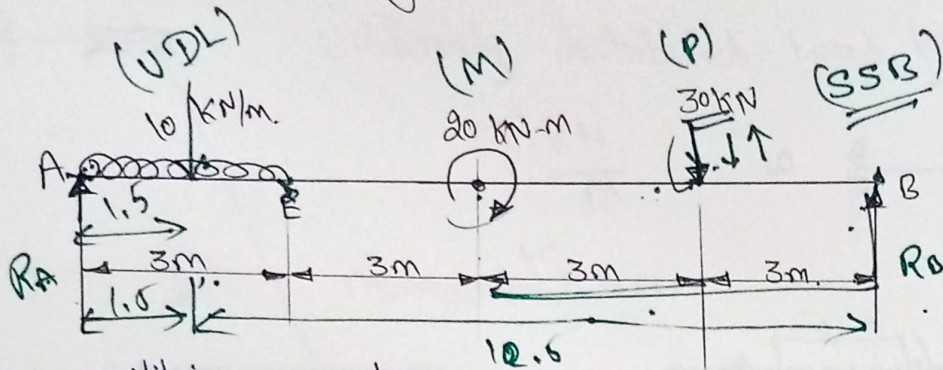 (UDL)
(M)
(P)
(SSB)
10 kN/m.
20 kN-m
30kN
A
E
B
1.5
RA
3m
3m
3m
3m.
RB
1.5
10.5